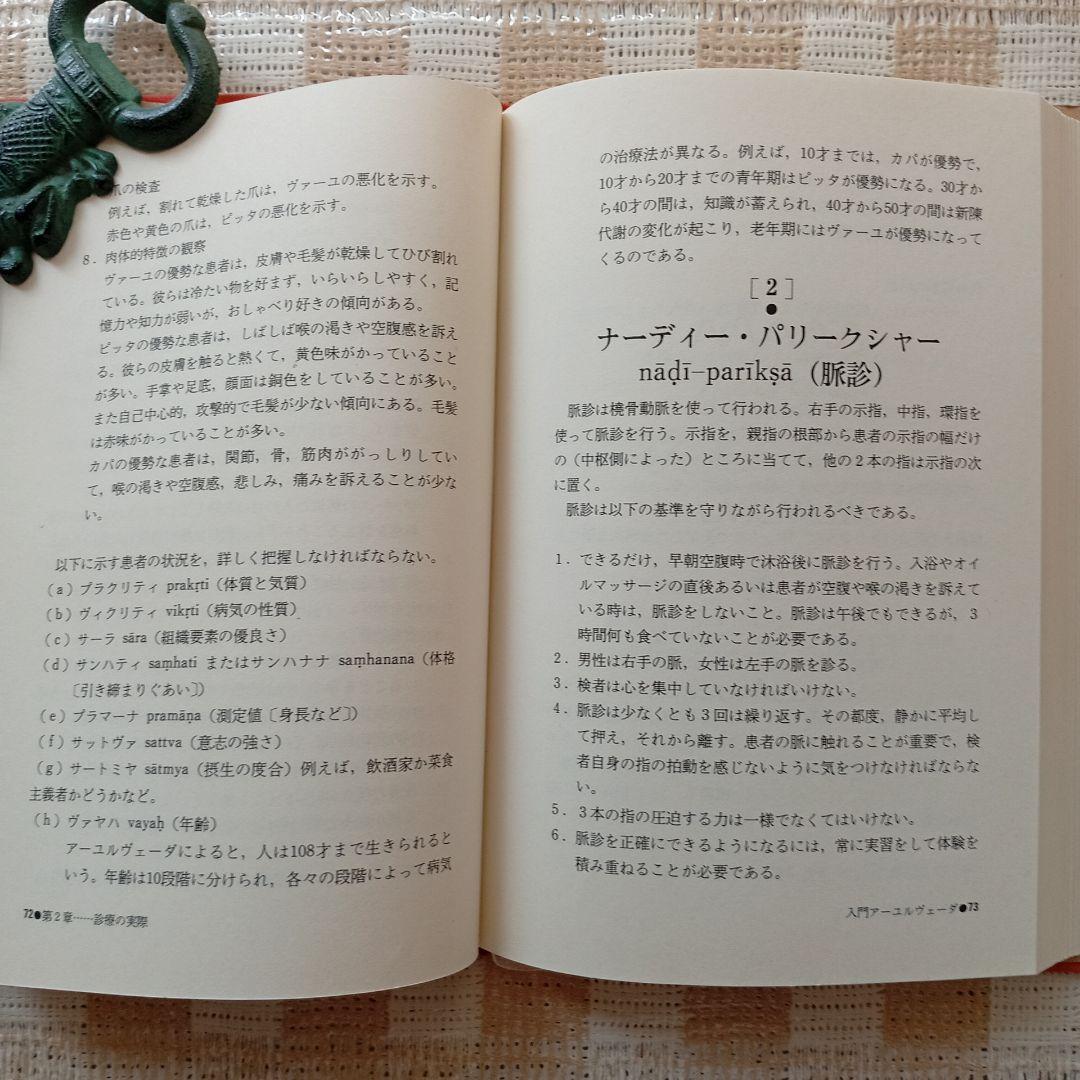 爪の検査
例えば，割れて乾燥した爪は，ヴァーユの悪化を示す。
赤色や黄色の爪は，ピッタの悪化を示す。
8．肉体的特徴の観察
ヴァーユの優勢な患者は，皮膚や毛髪が乾燥してひび割れ
ている。彼らは冷たい物を好まず，いらいらしやすく，記
憶力や知力が弱いが，おしゃべり好きの傾向がある。
ピッタの優勢な患者は，しばしば喉の渇きや空腹感を訴え
る。彼らの皮膚を触ると熱くて，黄色味がかっていること
が多い。手掌や足底，顔面は銅色をしていることが多い。
また自己中心的，攻撃的で毛髪が少ない傾向にある。毛髪
は赤味がかっていることが多い。
カパの優勢な患者は，関節，骨，筋肉ががっしりしてい
て，喉の渇きや空腹感，悲しみ，痛みを訴えることが少な
い。
以下に示す患者の状況を，詳しく把握しなければならない。
(a) プラクリティ prakṛti（体質と気質）
(b) ヴィクリティ vikṛti（病気の性質）
(c) サーラ sāra（組織要素の優良さ）
(d) サンハティ saṃhati またはサンハナナ saṃhanana（体格
〔引き締まりぐあい〕）
(e) プラマーナ pramāṇa（測定値〔身長など〕）
(f) サットヴァ sattva（意志の強さ）
(g) サートミヤ sātmya（摂生の度合）例えば，飲酒家か菜食
主義者かどうかなど。
(h) ヴァヤハ vayaḥ（年齢）
アーユルヴェーダによると，人は108才まで生きられると
いう。年齢は10段階に分けられ，各々の段階によって病気
72●第2章……診療の実際
の治療法が異なる。例えば，10才までは，カパが優勢で，
10才から20才までの青年期はピッタが優勢になる。30才か
ら40才の間は，知識が蓄えられ，40才から50才の間は新陳
代謝の変化が起こり，老年期にはヴァーユが優勢になって
くるのである。
［2］
●
ナーディー・パリークシャー
nāḍī–parīkṣā（脈診）
脈診は橈骨動脈を使って行われる。右手の示指、中指、環指を
使って脈診を行う。示指を，親指の根部から患者の示指の幅だけ
の（中枢側によった）ところに当てて，他の2本の指は示指の次
に置く。
脈診は以下の基準を守りながら行われるべきである。
1．できるだけ，早朝空腹時で沐浴後に脈診を行う。入浴やオイ
ルマッサージの直後あるいは患者が空腹や喉の渇きを訴えて
いる時は，脈診をしないこと。脈診は午後でもできるが，3
時間何も食べていないことが必要である。
2．男性は右手の脈，女性は左手の脈を診る。
3．検者は心を集中していなければいけない。
4．脈診は少なくとも3回は繰り返す。その都度，静かに平均し
て押え，それから離す。患者の脈に触れることが重要で，検
者自身の指の拍動を感じないように気をつけなければならな
い。
5．3本の指の圧迫する力は一様でなくてはいけない。
6．脈診を正確にできるようになるには，常に実習をして体験を
積み重ねることが必要である。
入門アーユルヴェーダ●73